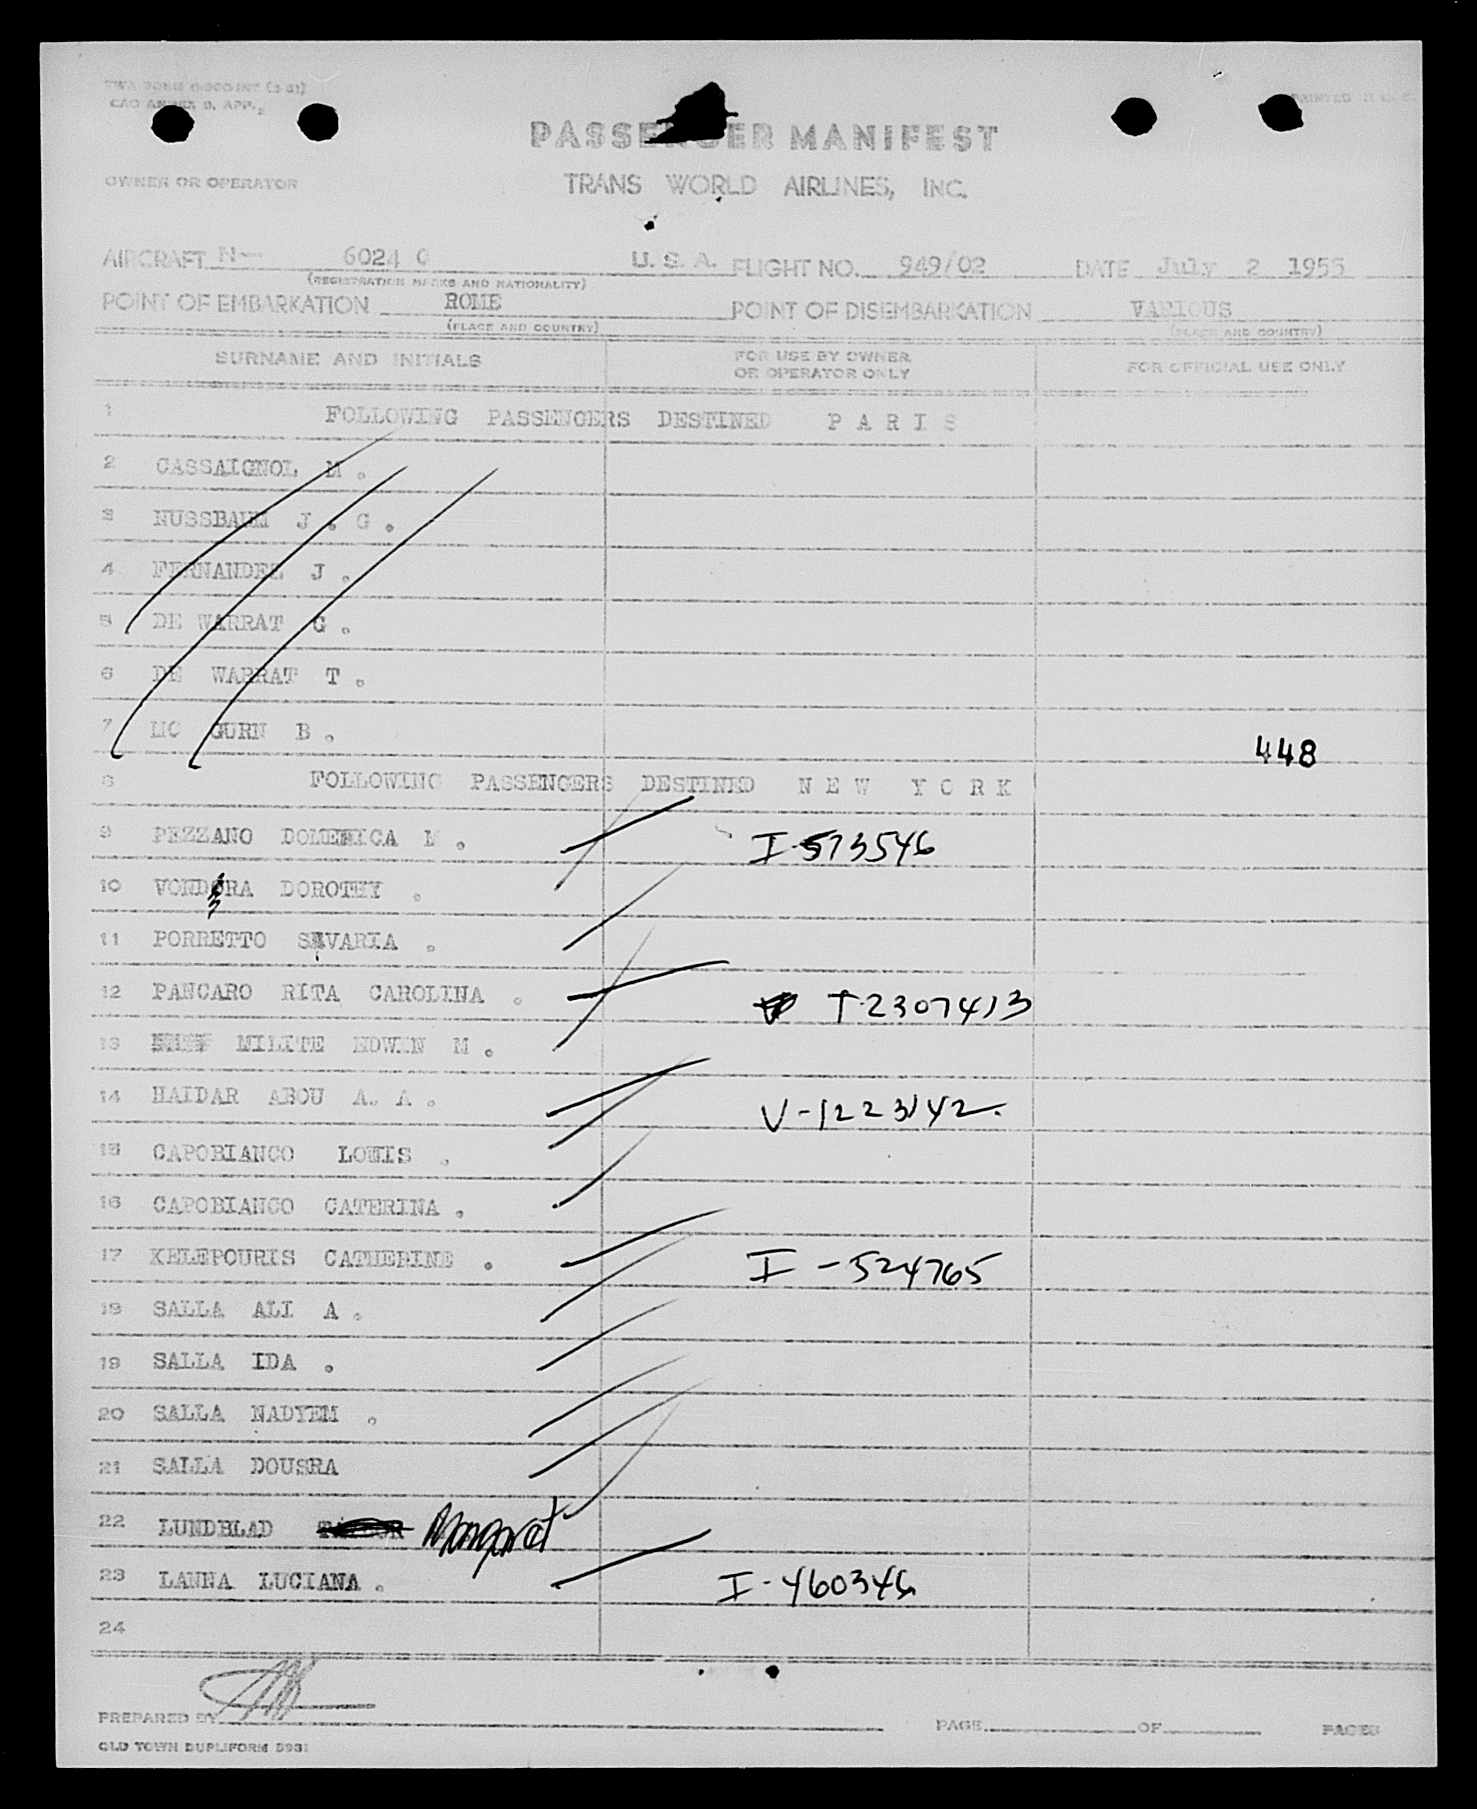 TWA FORM
CAO ANNEX 9, APP.
PRINTED
PASSENGER MANIFEST
OWNER OR OPERATOR
TRANS WORLD AIRLINES, INC.
AIRCRAFT N- 6024 C U. S. A. FLIGHT NO. 949/02 DATE July 2 1955
(REGISTRATION MARKS AND NATIONALITY)
POINT OF EMBARKATION ROME POINT OF DISEMBARKATION VARIOUS
(PLACE AND COUNTRY) (PLACE AND COUNTRY)
SURNAME AND INITIALS FOR USE BY OWNER OR OPERATOR ONLY FOR OFFICIAL USE ONLY
1 FOLLOWING PASSENGERS DESTINED P A R I S
2 CASSAIGNOL M .
3 NUSSBAUM J . G .
4 FERNANDEZ J .
5 DE WARRAT G .
6 DE WARRAT T .
7 MC GURN B .
448
8 FOLLOWING PASSENGERS DESTINED N E W Y O R K
9 PEZZANO DOMENICA M . I-573546
10 DOROTHY .
11 PORRETTO SAVARIA .
12 PANCARO RITA CAROLINA . T-2307413
13 MILITE EDWIN M .
14 HAIDAR ABOU A. A . V-1223142.
15 CAPOBIANCO LOUIS .
16 CAPOBIANCO CATERINA .
17 KELEPOURIS CATHERINE . I-524765
18 SALLA ALI A .
19 SALLA IDA .
20 SALLA NADYEM .
21 SALLA DOUSRA
22 LUNDBLAD Margaret
23 LANNA LUCIANA . I-460346
24
PREPARED BY PAGE OF PAGES
OLD TOWN DUPLIFORM 5931